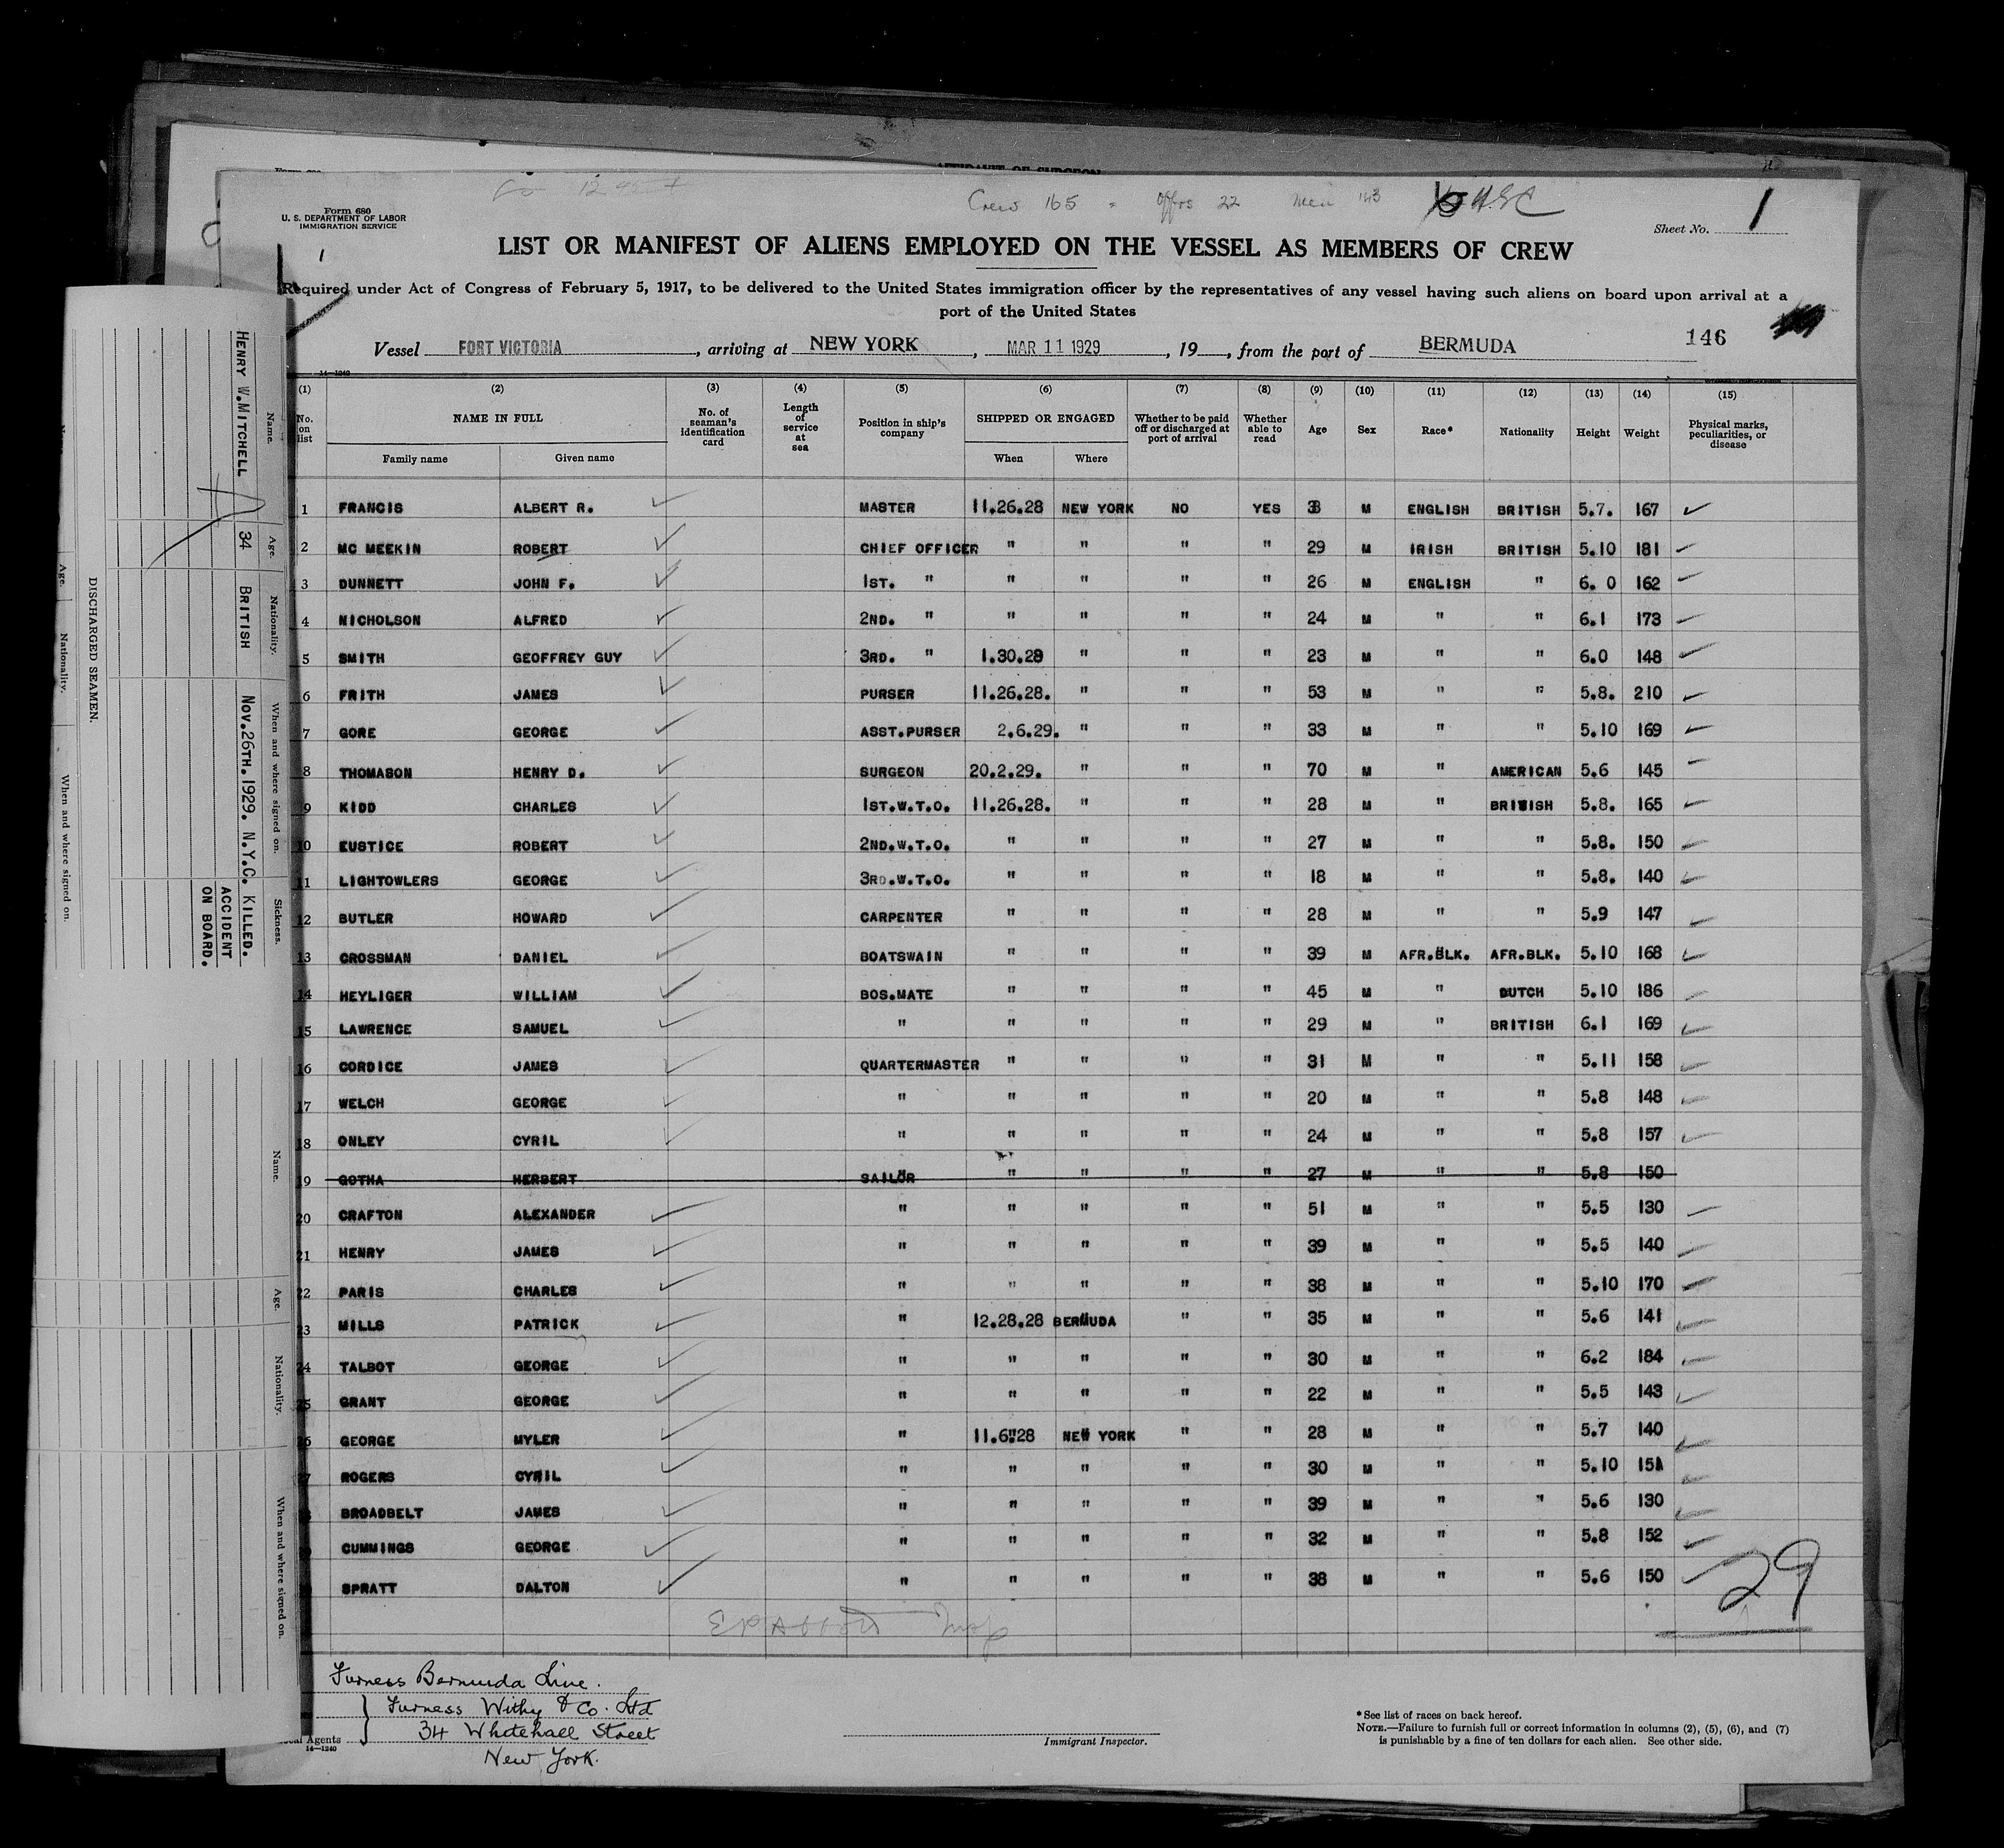 AFFIDAVIT OF SURGEON
Crew 165 - Offrs 22 Men 143
Form 680
U. S. DEPARTMENT OF LABOR
IMMIGRATION SERVICE
Sheet No. 1
1
LIST OR MANIFEST OF ALIENS EMPLOYED ON THE VESSEL AS MEMBERS OF CREW
Required under Act of Congress of February 5, 1917, to be delivered to the United States immigration officer by the representatives of any vessel having such aliens on board upon arrival at a
port of the United States
Vessel FORT VICTORIA, arriving at NEW YORK, MAR 11 1929, 19, from the port of BERMUDA
146
14—1240
(1) (2) (3) (4) (5) (6) (7) (8) (9) (10) (11) (12) (13) (14) (15)
No. on list NAME IN FULL No. of seaman's identification card Length of service at sea Position in ship's company SHIPPED OR ENGAGED Whether to be paid off or discharged at port of arrival Whether able to read Age Sex Race* Nationality Height Weight Physical marks, peculiarities, or disease
Family name Given name When Where
1 FRANCIS ALBERT R. MASTER 11.26.28 NEW YORK NO YES 38 M ENGLISH BRITISH 5.7. 167
2 MC MEEKIN ROBERT CHIEF OFFICER " " " " 29 M IRISH BRITISH 5.10 181
3 DUNNETT JOHN F. 1ST. " " " " " 26 M ENGLISH " 6. 0 162
4 NICHOLSON ALFRED 2ND. " " " " " 24 M " " 6.1 173
5 SMITH GEOFFREY GUY 3RD. " 1.30.29 " " " 23 M " " 6.0 148
6 FRITH JAMES PURSER 11.26.28. " " " 53 M " " 5.8. 210
7 GORE GEORGE ASST.PURSER 2.6.29. " " " 33 M " " 5.10 169
8 THOMASON HENRY D. SURGEON 20.2.29. " " " 70 M " AMERICAN 5.6 145
9 KIDD CHARLES 1ST.W.T.O. 11.26.28. " " " 28 M " BRITISH 5.8. 165
10 EUSTICE ROBERT 2ND.W.T.O. " " " " 27 M " " 5.8. 150
11 LIGHTOWLERS GEORGE 3RD.W.T.O. " " " " 18 M " " 5.8. 140
12 BUTLER HOWARD CARPENTER " " " " 28 M " " 5.9 147
13 CROSSMAN DANIEL BOATSWAIN " " " " 39 M AFR.BLK. AFR.BLK. 5.10 168
14 HEYLIGER WILLIAM BOS.MATE " " " " 45 M " DUTCH 5.10 186
15 LAWRENCE SAMUEL " " " " " 29 M " BRITISH 6.1 169
16 CORDICE JAMES QUARTERMASTER " " " " 31 M " " 5.11 158
17 WELCH GEORGE " " " " " 20 M " " 5.8 148
18 ONLEY CYRIL " " " " " 24 M " " 5.8 157
19 GOTHA HERBERT SAILOR " " " " 27 M " " 5.8 150
20 CRAFTON ALEXANDER " " " " " 51 M " " 5.5 130
21 HENRY JAMES " " " " " 39 M " " 5.5 140
22 PARIS CHARLES " " " " " 38 M " " 5.10 170
23 MILLS PATRICK " 12.28.28 BERMUDA " " 35 M " " 5.6 141
24 TALBOT GEORGE " " " " " 30 M " " 6.2 184
25 GRANT GEORGE " " " " " 22 M " " 5.5 143
26 GEORGE MYLER " 11.6.28 NEW YORK " " 28 M " " 5.7 140
ROGERS CYRIL " " " " " 30 M " " 5.10 151
BROADBELT JAMES " " " " " 39 M " " 5.6 130
CUMMINGS GEORGE " " " " " 32 M " " 5.8 152
SPRATT DALTON " " " " " 38 M " " 5.6 150
29
Furness Bermuda Line.
Furness Withy & Co. Ltd
34 Whitehall Street
New York.
Agents
14—1240
Immigrant Inspector.
*See list of races on back hereof.
NOTE.—Failure to furnish full or correct information in columns (2), (5), (6), and (7)
is punishable by a fine of ten dollars for each alien. See other side.
Name. Age. Nationality. When and where signed on. Sickness.
HENRY W.MITCHELL 34 BRITISH Nov.26TH.1929. N.Y.C. KILLED.
ACCIDENT
ON BOARD.
DISCHARGED SEAMEN.
Age. Nationality. When and where signed on.
Name. Age. Nationality. When and where signed on.